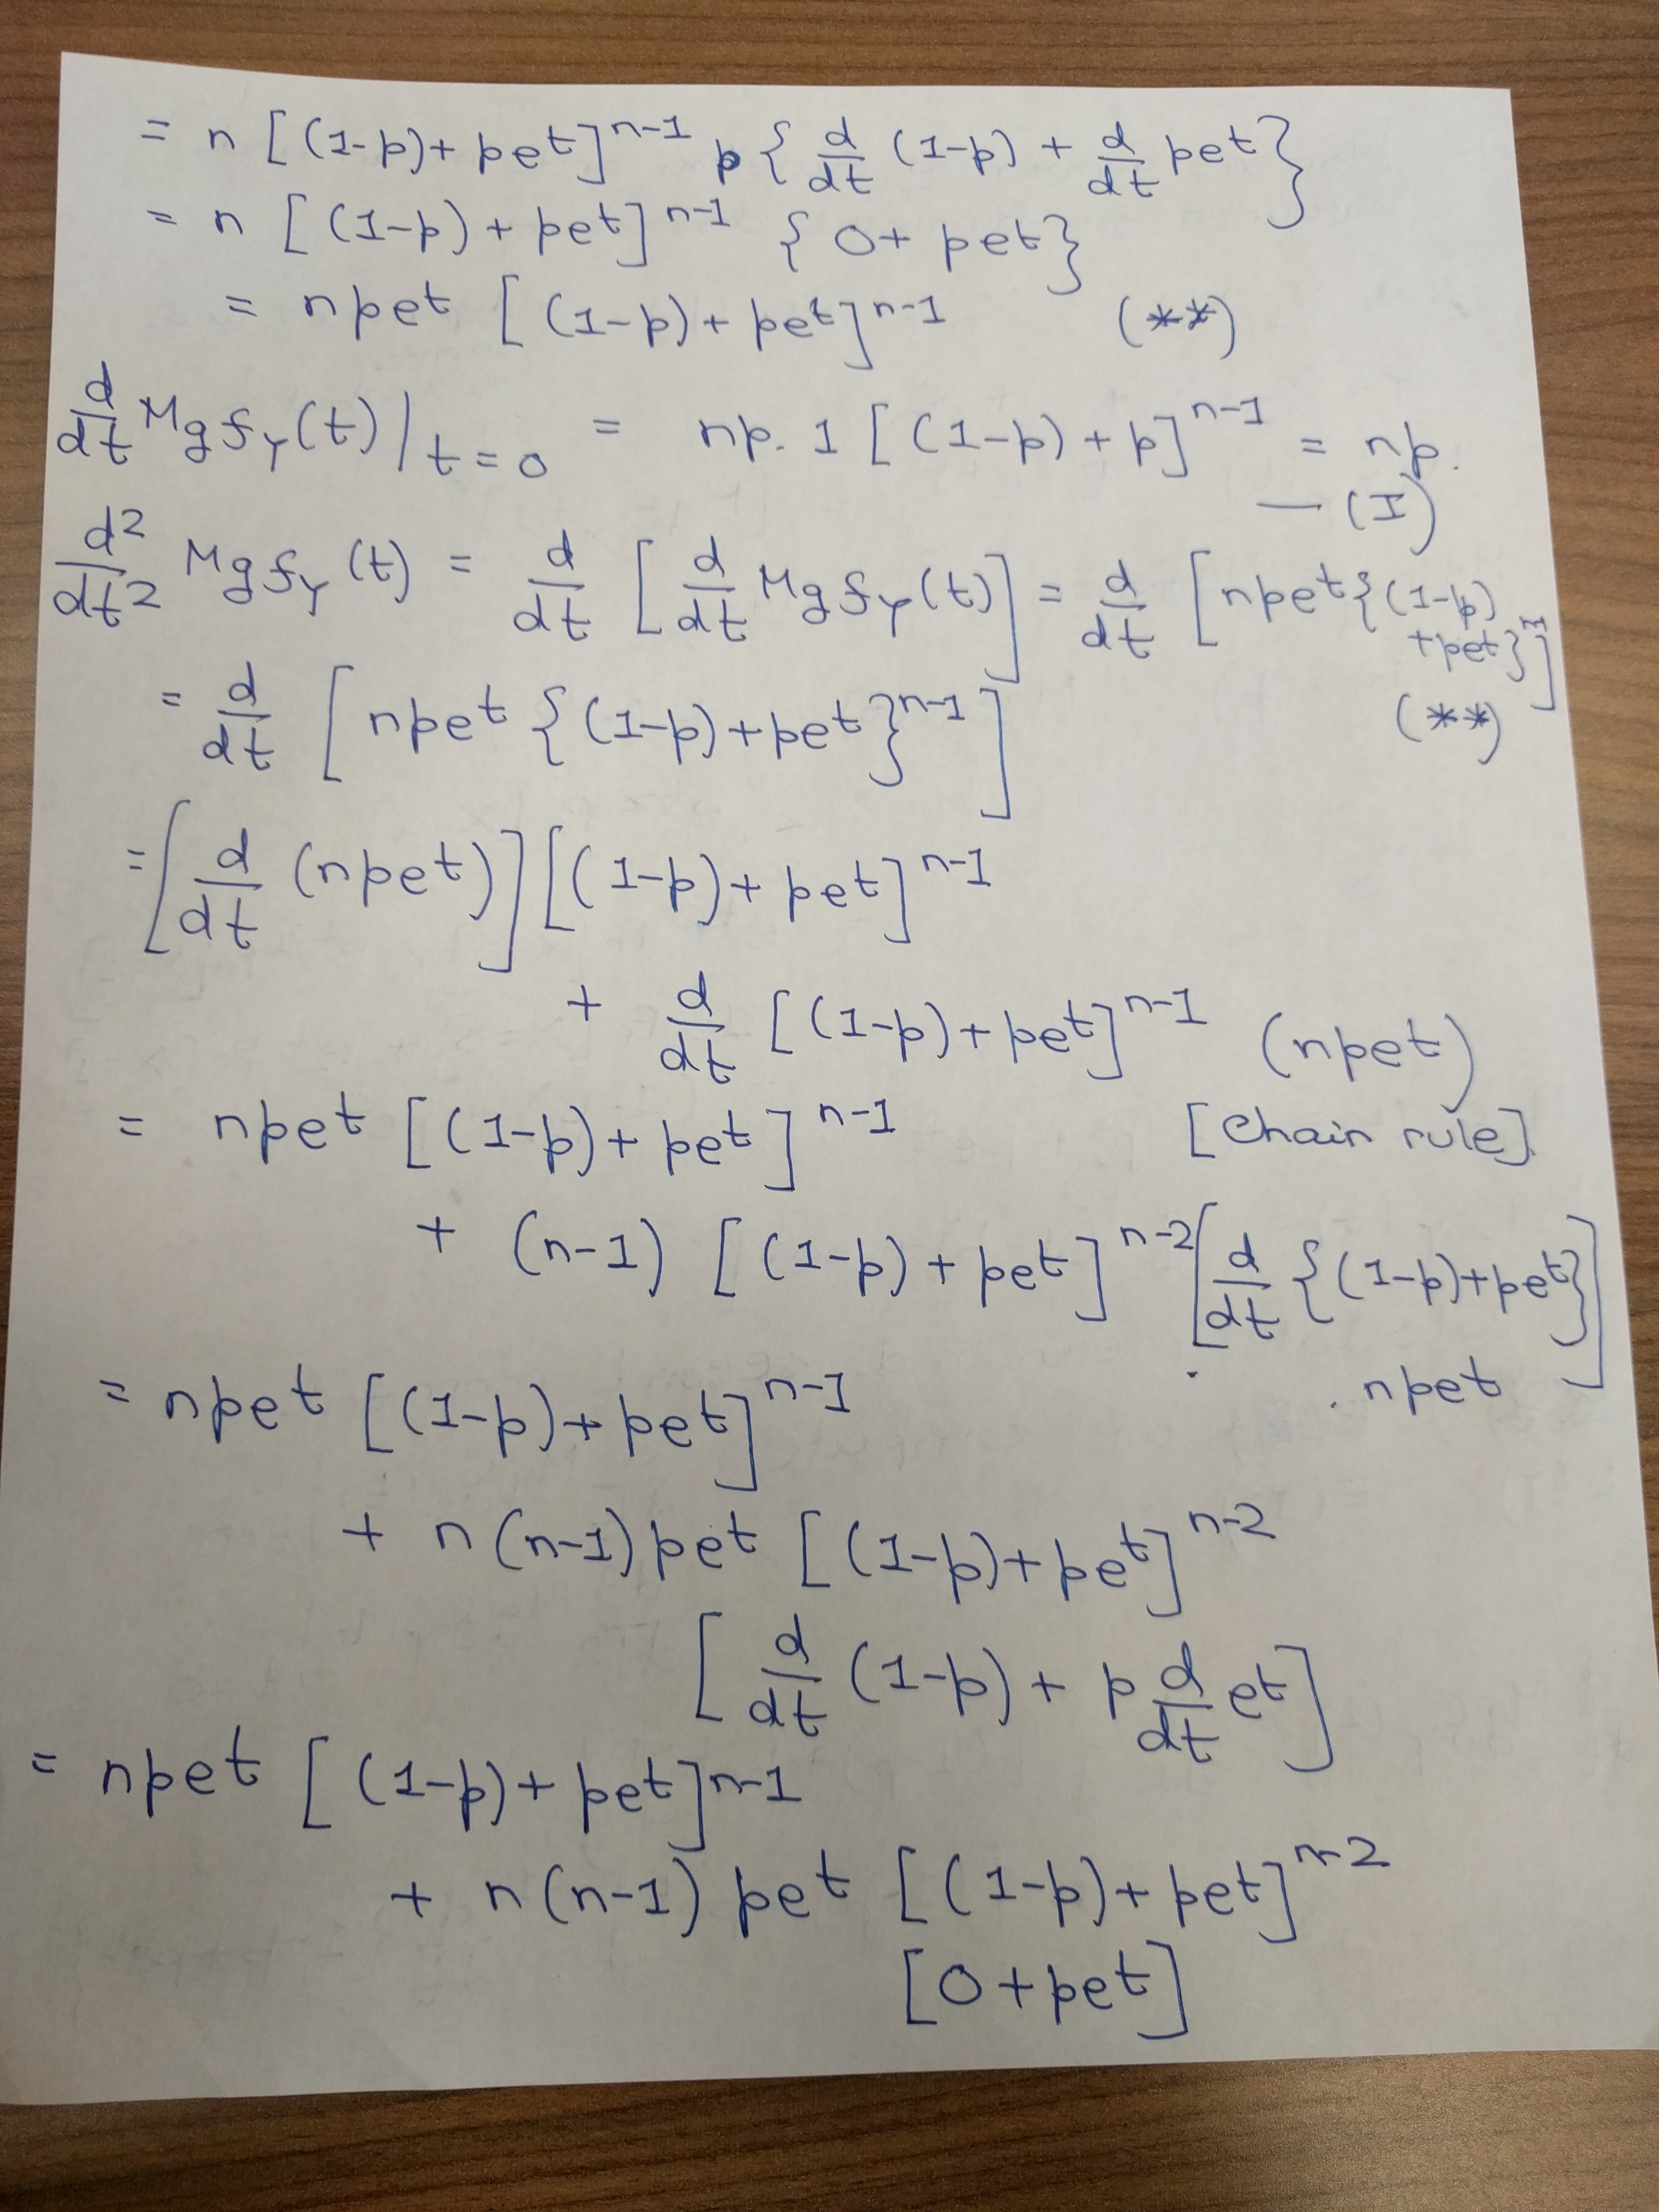 = n [(1-p)+ pe^t]^{n-1} p { d/dt (1-p) + d/dt pe^t }
= n [(1-p) + pe^t]^{n-1} { 0 + pe^t }
= npe^t [(1-p) + pe^t]^{n-1} (**)
d/dt Mgf_Y(t)|_{t=0} = np. 1 [(1-p) + p]^{n-1} = np.
— (I)
d^2/dt^2 Mgf_Y(t) = d/dt [ d/dt Mgf_Y(t) ] = d/dt [ npe^t {(1-p)
+pe^t} ]
= d/dt [ npe^t {(1-p)+pe^t}^{n-1} ] (**)
= [ d/dt (npe^t) ] [(1-p)+ pe^t]^{n-1}
+ d/dt [(1-p)+pe^t]^{n-1} (npe^t)
= npe^t [(1-p)+ pe^t]^{n-1} [Chain rule].
+ (n-1) [(1-p) + pe^t]^{n-2} [ d/dt {(1-p)+pe^t} ]
. npe^t
= npe^t [(1-p)+ pe^t]^{n-1}
+ n(n-1)pe^t [(1-p)+pe^t]^{n-2}
[ d/dt (1-p) + p d/dt e^t ]
= npe^t [(1-p)+ pe^t]^{n-1}
+ n(n-1) pe^t [(1-p)+pe^t]^{n-2}
[0+pe^t]